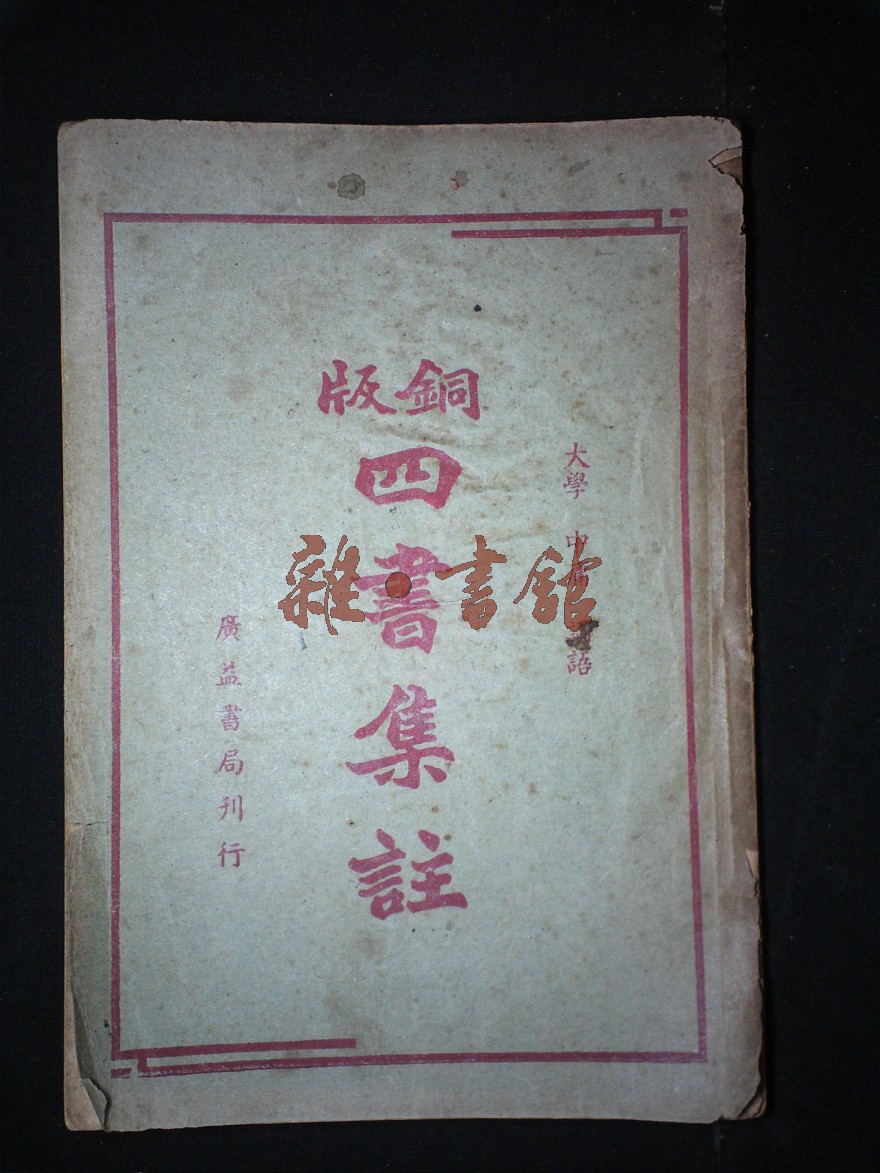 大學 中庸 論語
銅版
四書集註
廣益書局刊行
雜·書館